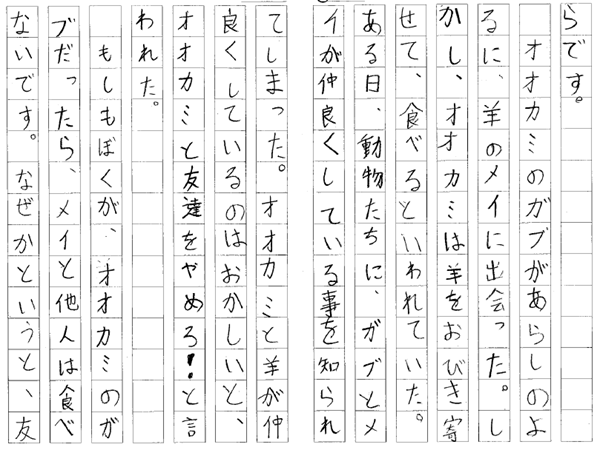 らです。
　オオカミのガブがあらしのよ
るに、羊のメイに出会った。し
かし、オオカミは羊をおびき寄
せて、食べるといわれていた。
ある日、動物たちに、ガブとメ
イが仲良くしている事を知られ
てしまった。オオカミと羊が仲
良くしているのはおかしいと、
オオカミと友達をやめろ！と言
われた。
　もしもぼくが、オオカミのガ
ブだったら、メイと他人は食べ
ないです。なぜかというと、友